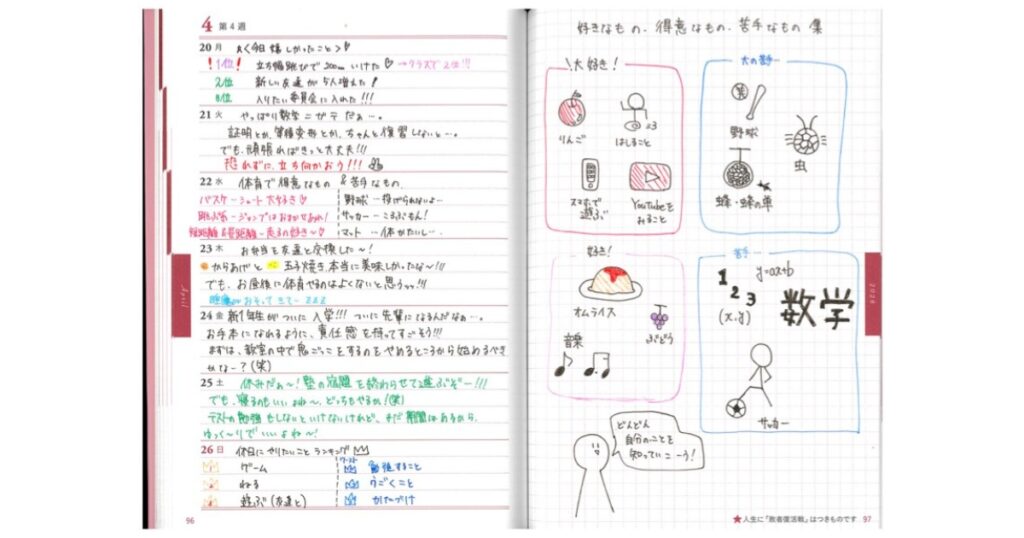 4 第4週
20 月 <今日嬉しかったこと>♡
!1位! 立ち幅跳びで200cmいけた♡→クラスで2位!!!
2位 新しい友達が5人増えた!
3位 入りたい委員会に入れた!!!
21 火 やっぱり数学ニガテだぁ…。
証明とか、等積変形とか、ちゃんと復習しないと…。
でも、頑張ればきっと大丈夫!!!
恐れずに、立ち向かおう!!!
22 水 体育で得意なもの & 苦手なもの。
バスケ…シュート大好き♡
野球…投げられないよ…
ジャンプはおまかせあれ!
サッカー…ころぶもん!
短距離&長距離…走るの好き~♡
マット…体かたいし…
23 木 お弁当を友達と交換した~!
からあげと 玉子焼き、本当に美味しかったな~!!!
でも、お昼後に体育やるのはよくないと思うっッ!!!
おそってきて… zzz
24 金 新1年生がついに入学!!! ついに先輩になるんだなぁ…。
お手本になれるように、責任感を持ってすごそう!!!
まずは、教室の中で鬼ごっこをするのをやめるところから始めるべき
かなー?(笑)
25 土 休みだぁ~!塾の宿題を終わらせて遊ぶぞー!!!
でも、寝るのもいいよね~、どっちもやるか!(笑)
テストの勉強もしないといけないけれど、まだ期間はあるから、
ゆっく~りでいいよね~!
26 日 休日にやりたいことランキング
ワースト
ゲーム
勉強すること
ねる
うごくこと
遊ぶ(友達と)
かたづけ
96
April
好きなもの、得意なもの、苦手なもの 集
\大好き!
りんご
はしること
スマホで
遊ぶ
YouTubeを
みること
大の苦手…
野球
虫
蜂・蜂の巣
好き!
オムライス
ぶどう
音楽
苦手…
1
2
3
y=ax+b
(x,y)
数学
サッカー
どんどん
自分のことを
知っていこーう!
2026
★人生に「敗者復活戦」はつきものです 97